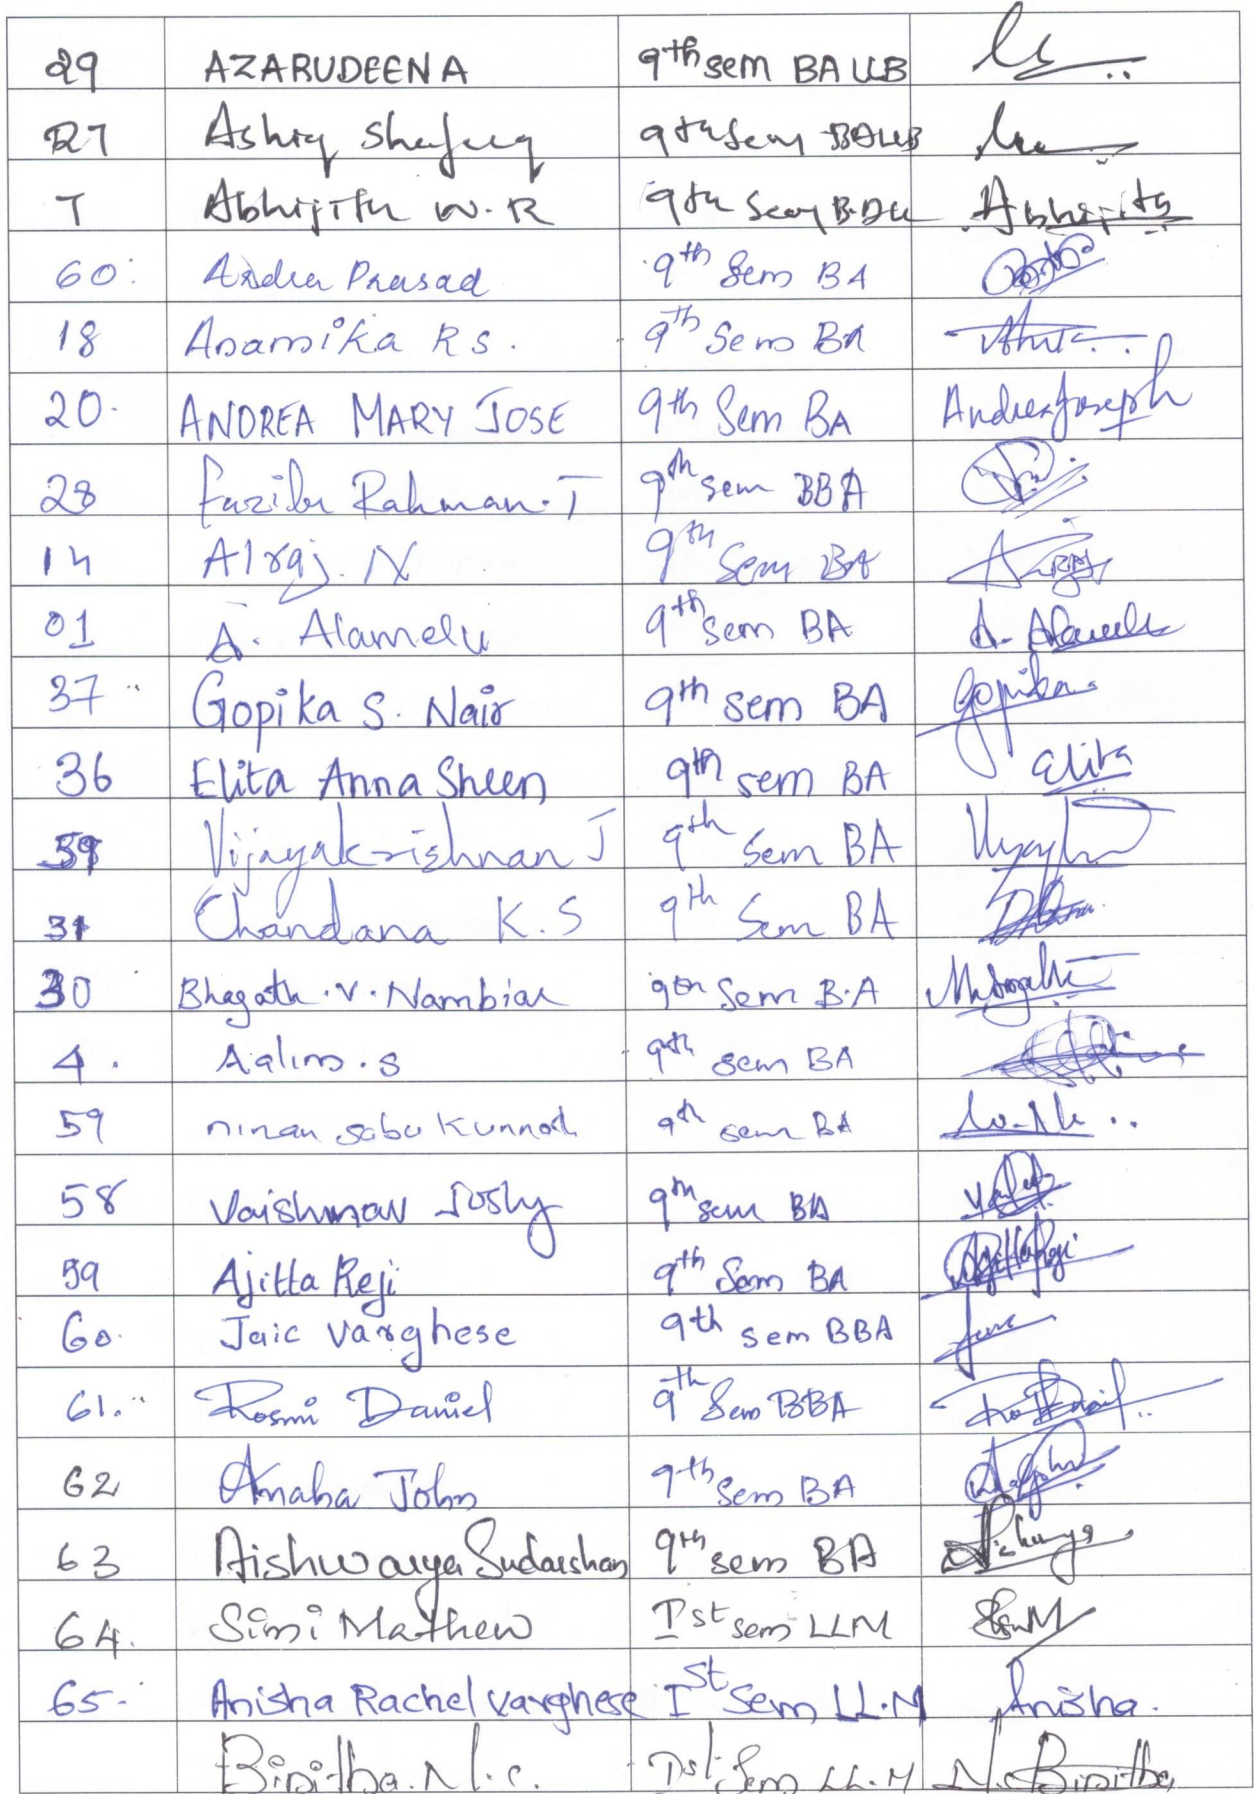 29 AZARUDEEN A 9th sem BA LLB
27 Ashiq Shafeeq 9th Sem BALLB
7 Abhijith W.R 9th Sem Abhijith
60. Prasad 9th Sem BA
18 Anamika R S. 9th Sem BA
20. ANDREA MARY JOSE 9th Sem BA Andrea Joseph
28 Fazilu Rahman. T 9th sem BBA
14 Alraj. N 9th Sem BA
01 A. Alamelu 9th sem BA A. Alamelu
37 Gopika S. Nair 9th sem BA Gopika
36 Elita Anna Sheen 9th sem BA Elita
Vijayakrishnan J 9th Sem BA
31 Chandana K.S 9th Sem BA
30 Bhagath.V.Nambiar 9th Sem B.A
4. Aalim.s 9th sem BA
59 ninan sabu 9th sem BA
58 Vaishnav Joshy 9th sem BA
59 Ajitta Reji 9th Sem BA Ajitta Reji
60. Jaic Varghese 9th sem BBA
61. Rosmi Daniel 9th Sem BBA
62 Anaha John 9th Sem BA
63 Aishwarya Sudarshan 9th sem BA
64. Simi Mathew Ist sem LLM
65. Anisha Rachel Varghese Ist Sem LL.M Anisha.
Binitha. N.C. Ist Sem LL.M N.C Binitha